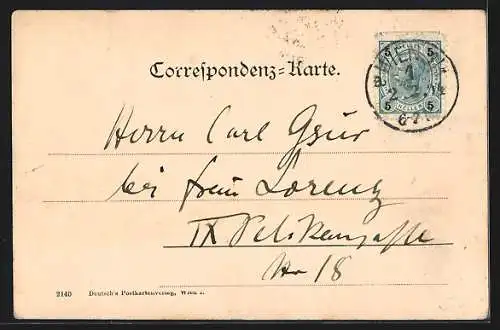 Correspondenz=Karte.
5 5
WIEN
5 HELLER 5
Herrn Carl
bei Frau Lorenz
IX Pelikangasse
Nr 18
2140 Deutsch's Postkartenverlag, Wien I.